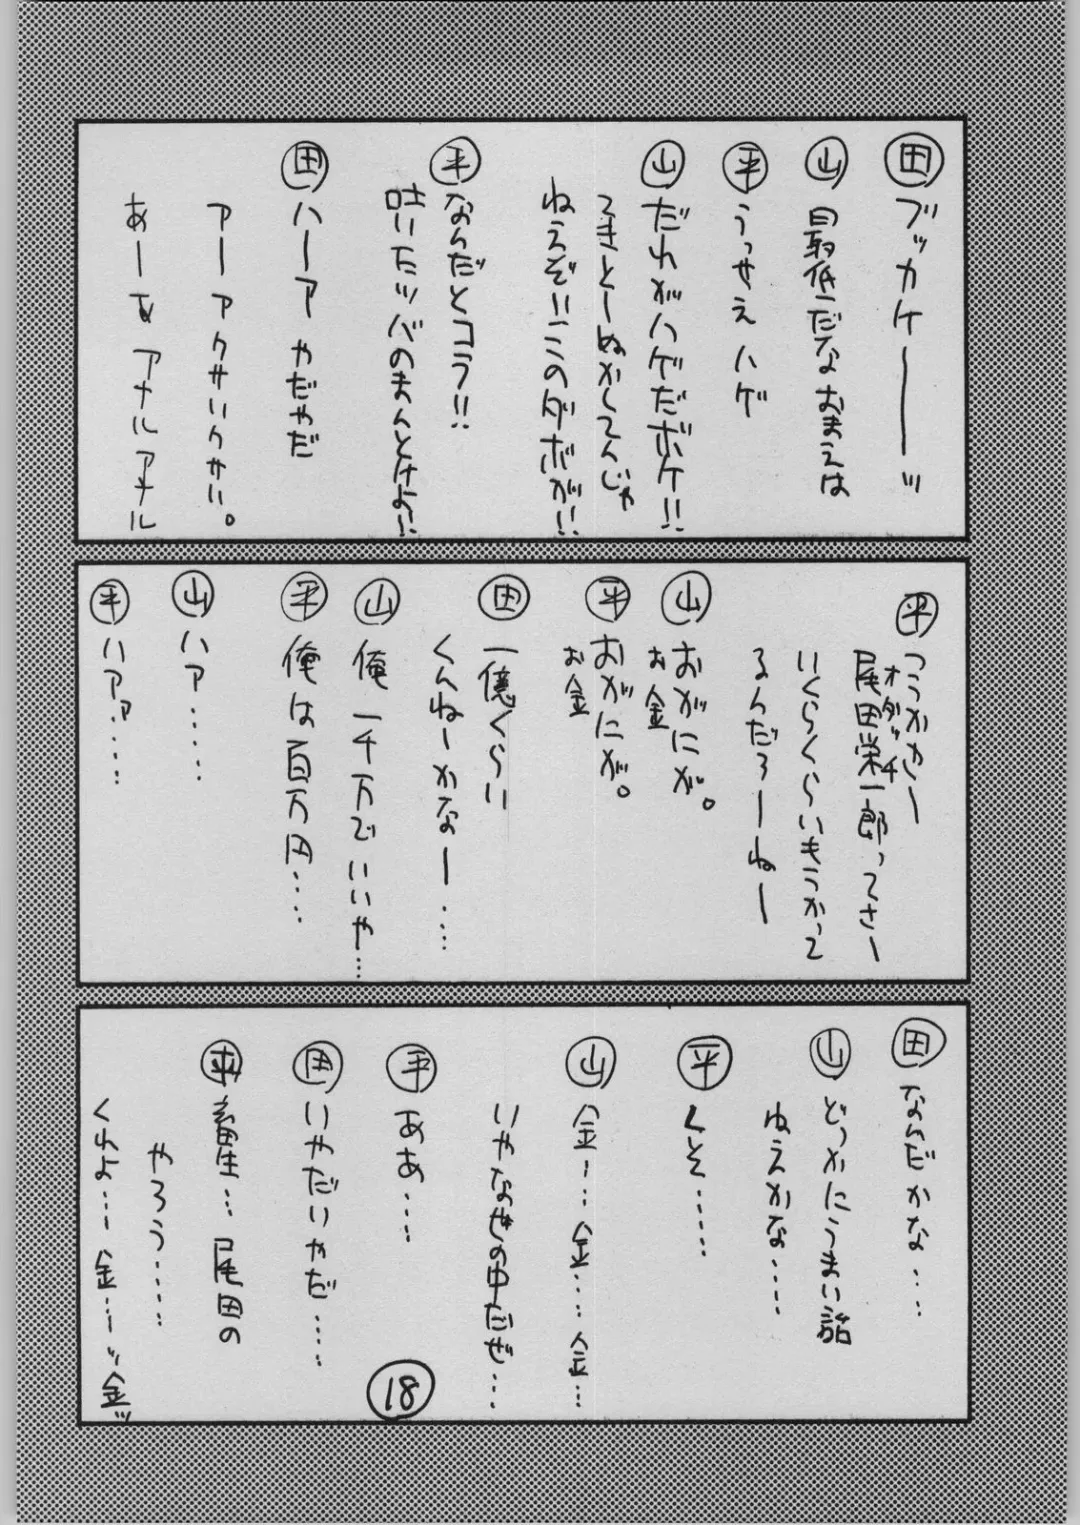 田 ブッカケーーーッ
山 最低だなおまえは
平 うっせえハゲ
山 だれがハゲだボケ!!
てきとーぬかしてんじゃ
ねえぞいこのダボが!!
平 なんだとコラ!!
吐いたツバのまんとけよ!!
田 ハーアやだやだ
アーアクサいクサい。
あーあアナルアナル
平 つうかさー
尾田栄一郎ってさー
オダッチ
いくらくらいもうかって
るんだろーねー
山 おがにが。
お金
平 おがにが。
お金
田 一億くらい
くんねーかなー…
山 俺一千万でいいや…
平 俺は百万円…
山 ハア……
平 ハアァ……
田 なんだかな……
山 どっかにうまい話
ねえかな……
平 くそ……
山 金……金……金…
いやなせの中だぜ…
平 ああ……
田 いやだいやだ……
平 畜生…尾田の
やろう……
くそよ……金……ッ金ッ
18